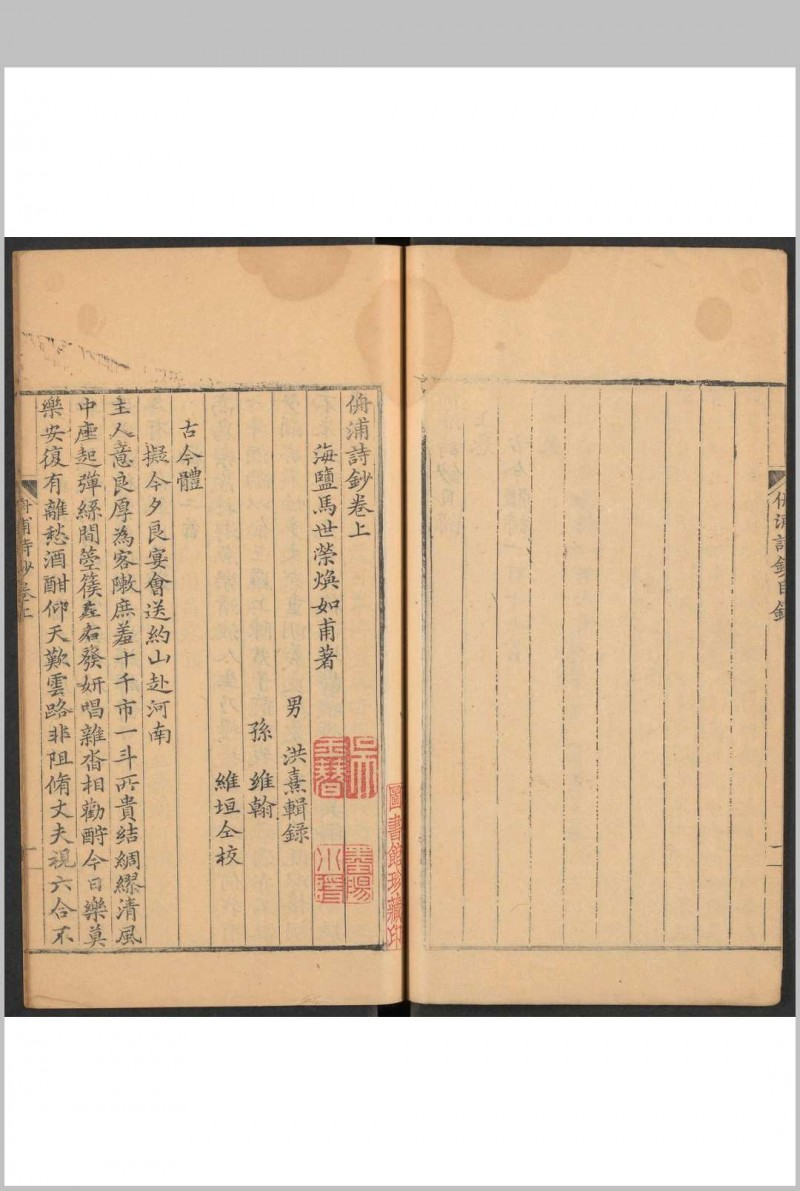 侜浦詩鈔目錄
侜浦詩鈔卷上
海鹽馬世榮煥如甫著
男 洪熹輯錄
孫 維翰
維垣仝校
古今體
擬今夕良宴會送約山赴河南
主人意良厚為客陳庶羞十千市一斗所貴結綢繆清風
中座起彈絲間箜篌㐀右發妍唱雜沓相勸酧今日樂莫
樂安復有離愁酒酣仰天歎雲路非阻脩丈夫視六合不
侜浦詩鈔卷上
圖書館珍藏印